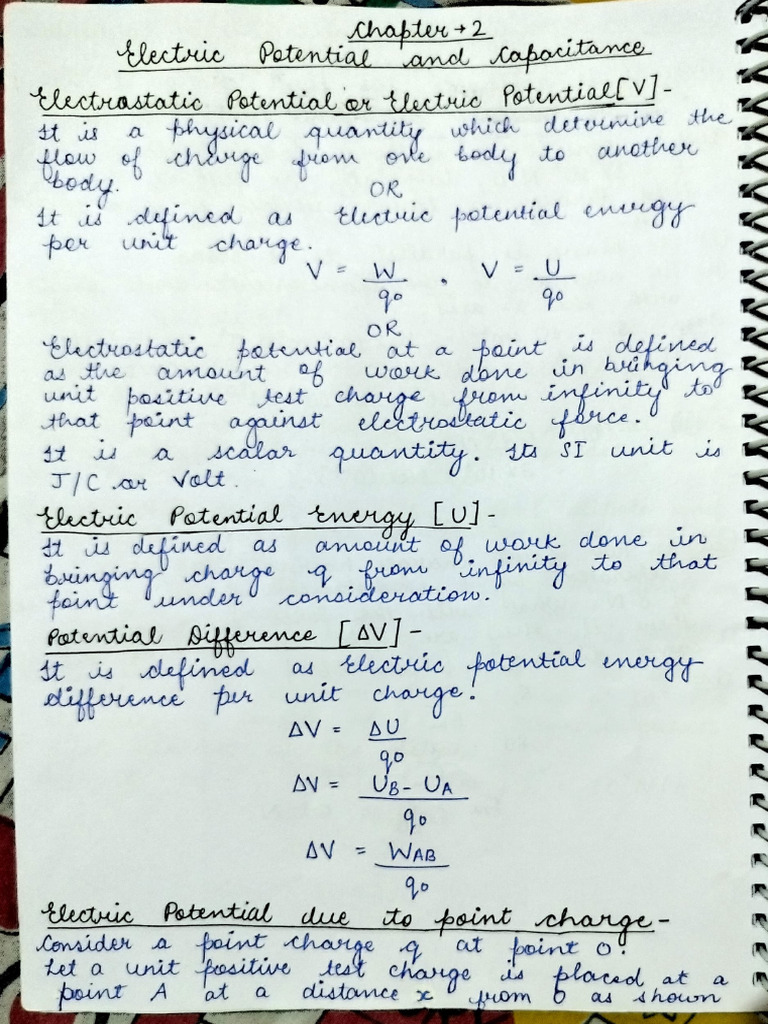 Chapter → 2
Electric Potential and Capacitance
Electrostatic Potential or Electric Potential [V] -
It is a physical quantity which determine the
flow of charge from one body to another
body.
OR
It is defined as Electric potential energy
per unit charge.
V = W/q₀ , V = U/q₀
OR
Electrostatic potential at a point is defined
as the amount of work done in bringing
unit positive test charge from infinity to
that point against electrostatic force.
It is a scalar quantity. Its SI unit is
J/C or Volt.
Electric Potential Energy [U] -
It is defined as amount of work done in
bringing charge q from infinity to that
point under consideration.
Potential Difference [ΔV] -
It is defined as Electric potential energy
difference per unit charge.
ΔV = ΔU/q₀
ΔV = U_B - U_A/q₀
ΔV = W_AB/q₀
Electric Potential due to point charge -
Consider a point charge q at point O.
Let a unit positive test charge is placed at a
point A at a distance x from O as shown